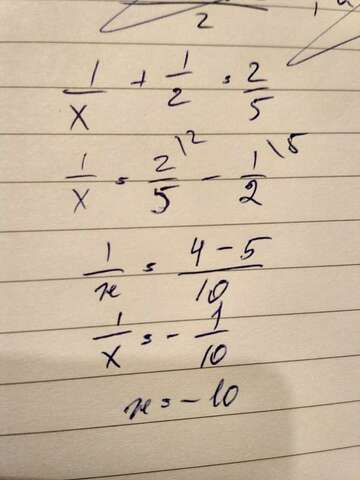 2
1/x + 1/2 = 2/5
1/x = 2/5 \2 - 1/2 \5
1/x = 4-5/10
1/x = -1/10
x = -10